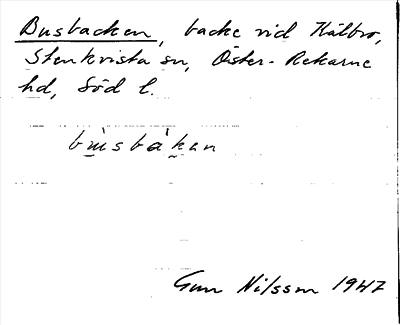 Busbacken, backe vid Hälbro,
Stenkvista sn, Öster-Rekarne
hd, Söd l.
bùsbàkan
Gun Nilsson 1947